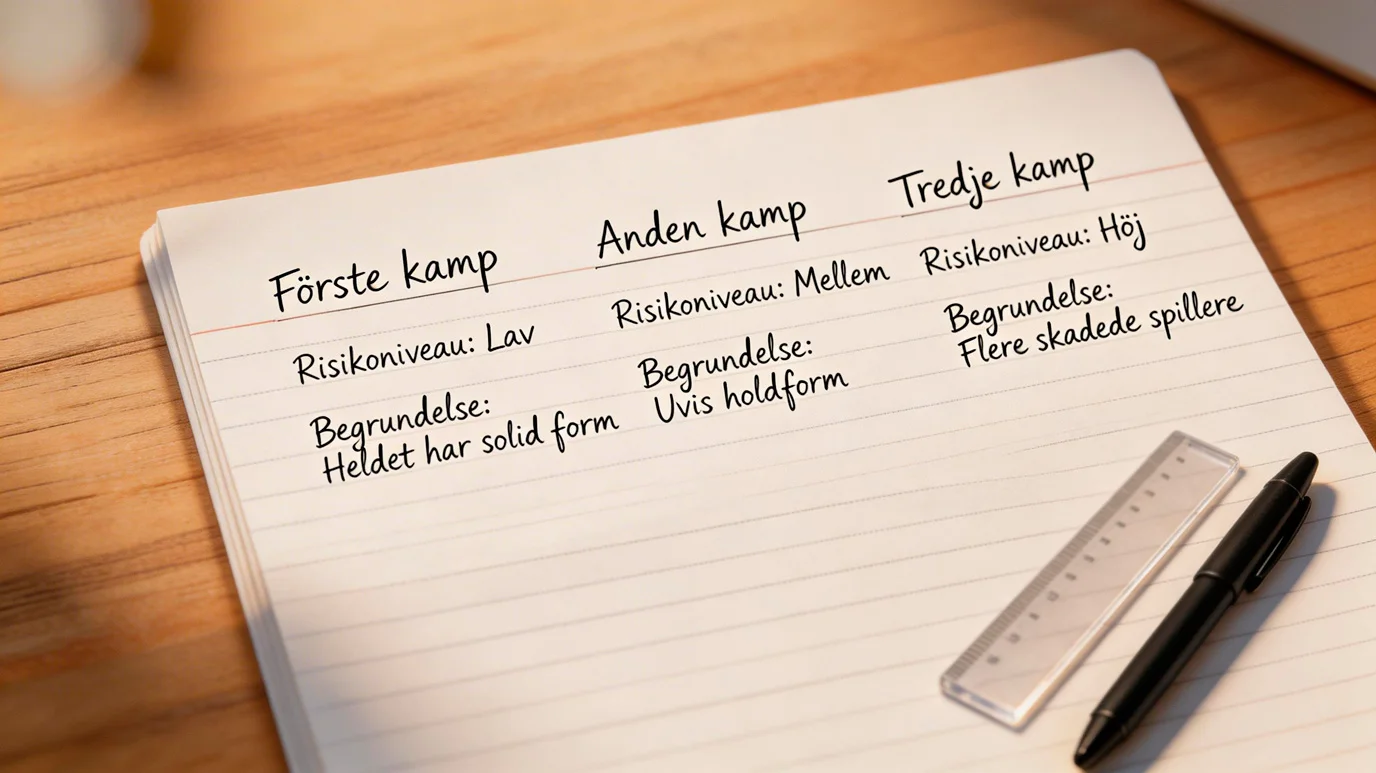 Förste kamp
Risikoniveau: Lav
Begrundelse:
Heldet har solid form
Anden kamp
Risikoniveau: Mellem
Begrundelse:
Uvis holdform
Tredje kamp
Risikoniveau: Höj
Begrundelse:
Flere skadede spillere